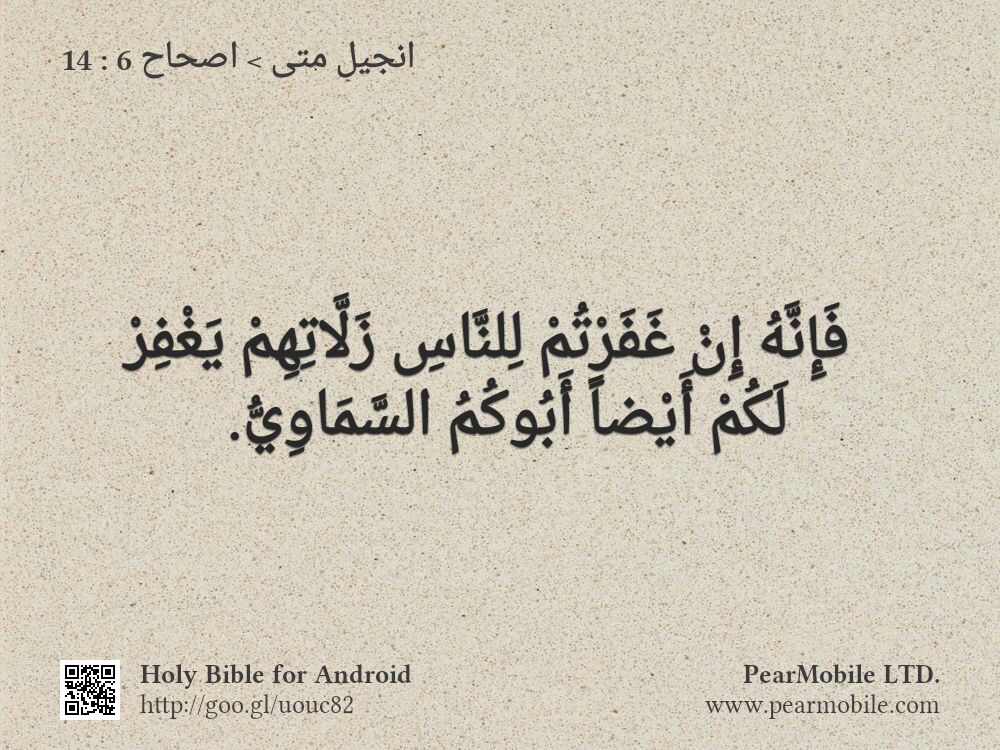 انجيل متى > اصحاح 6 : 14
فَإِنَّهُ إِنْ غَفَرْتُمْ لِلنَّاسِ زَلَّاتِهِمْ يَغْفِرْ
لَكُمْ أَيْضاً أَبُوكُمُ السَّمَاوِيُّ.
Holy Bible for Android
http://goo.gl/uouc82
PearMobile LTD.
www.pearmobile.com